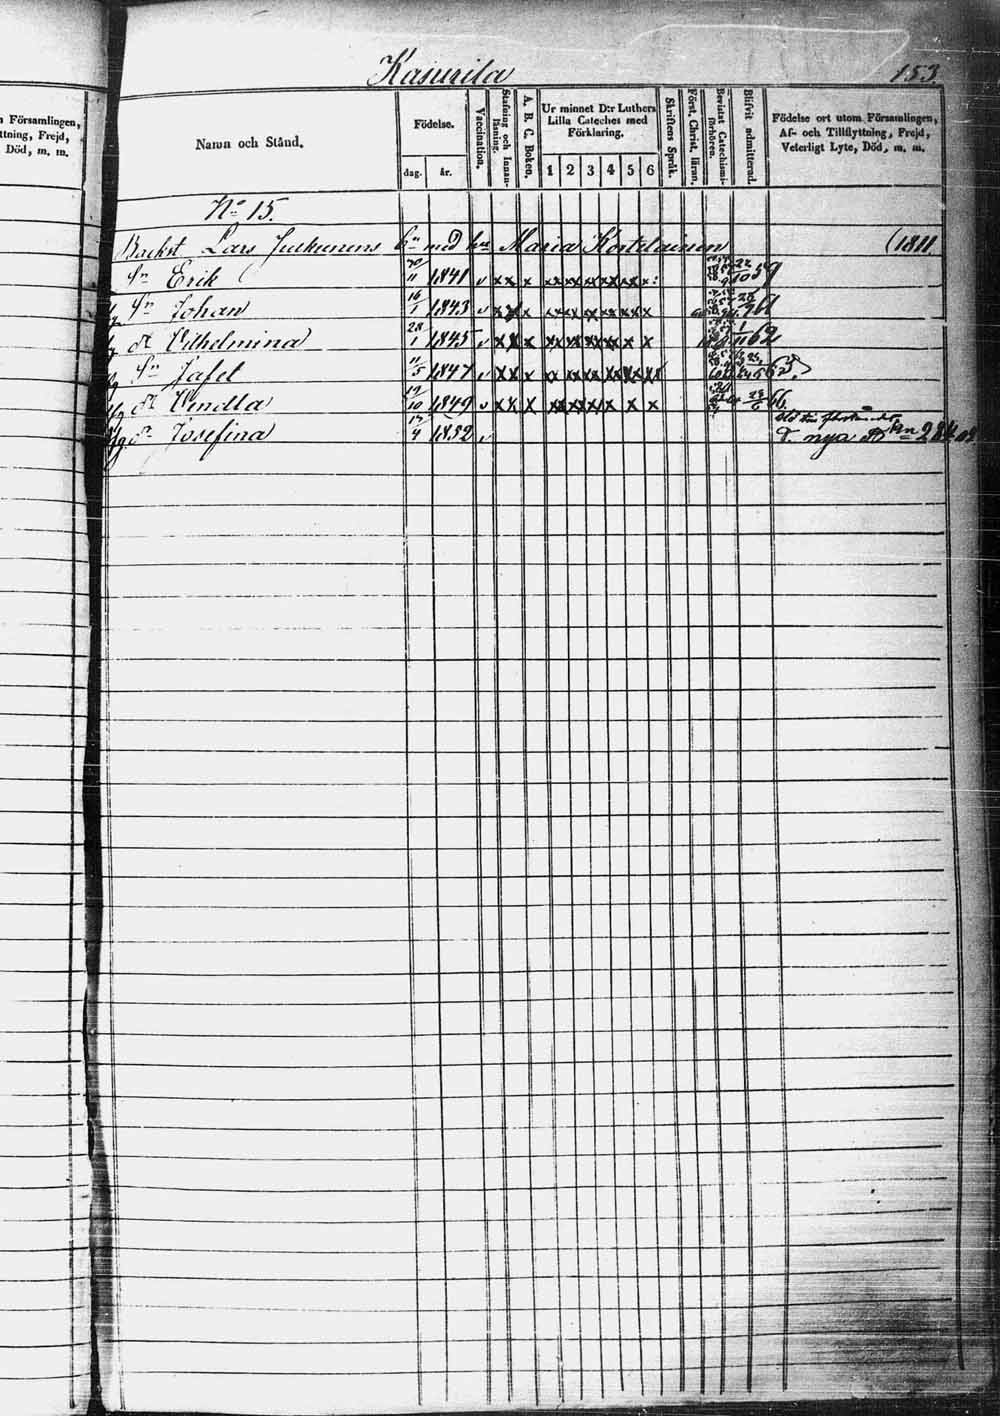 Kasurila
153.
n Församlingen,
ttning, Frejd,
Död, m. m.
Namn och Stånd.
Födelse.
dag.
år.
Vaccination.
Stafning och Innan-
läsning.
A. B. C. Boken.
Ur minnet D:r Luthers
Lilla Cateches med
Förklaring.
1 2 3 4 5 6
Skriftens Språk.
Först. Christ. läran.
Bevistat Catechismi-
förhören.
Blifvit admitterad.
Födelse ort utom Församlingen,
Af- och Tillflyttning, Frejd,
Veterligt Lyte, Död, m. m.
No 15.
Backst Lars Julkunens bn med hu Maria Kortelainen (1811.
Sn Erik 11 1841 v x x x x x x x x x 22/10 59
Sn Johan 16/1 1843 v x x x x x x x x x 61
dr Vilhelmina 28/1 1845 v x x x x x x x x x 1/11 62
Sn Jafet 11/5 1847 v x x x x x x x x x 63
dr Vendla 19/10 1849 v x x x x x x x x x 66
dr Josefina 4 1852 v nya